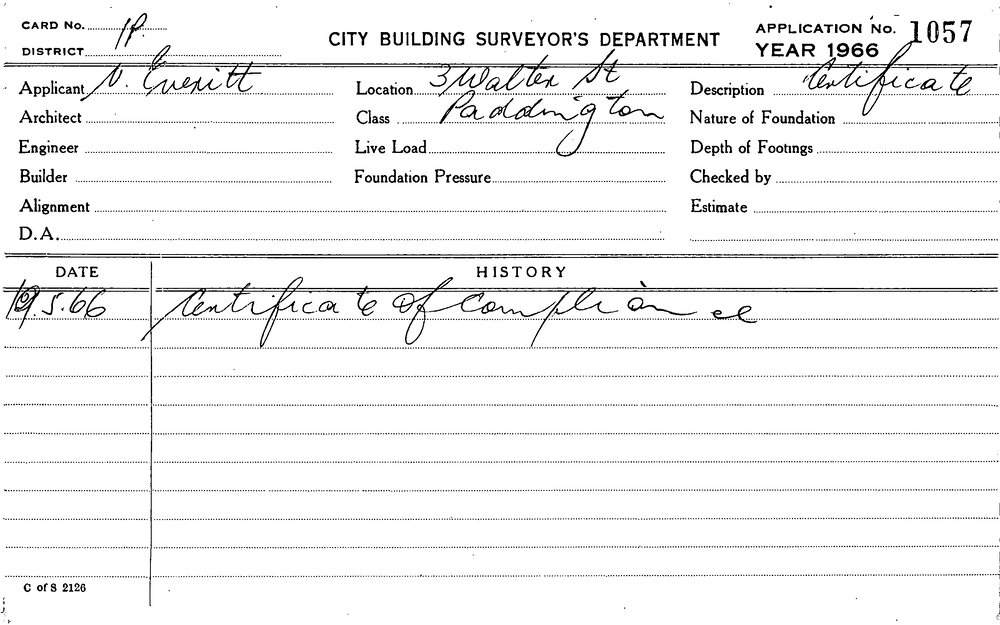 CARD No. 1P.
DISTRICT
CITY BUILDING SURVEYOR'S DEPARTMENT
APPLICATION No. 1057
YEAR 1966
Applicant V. Everitt
Location 3 Walter St
Description Certificate
Architect
Class Paddington
Nature of Foundation
Engineer
Live Load
Depth of Footings
Builder
Foundation Pressure
Checked by
Alignment
Estimate
D.A.
DATE HISTORY
19.5.66 Certificate of Compliance
C of S 2126